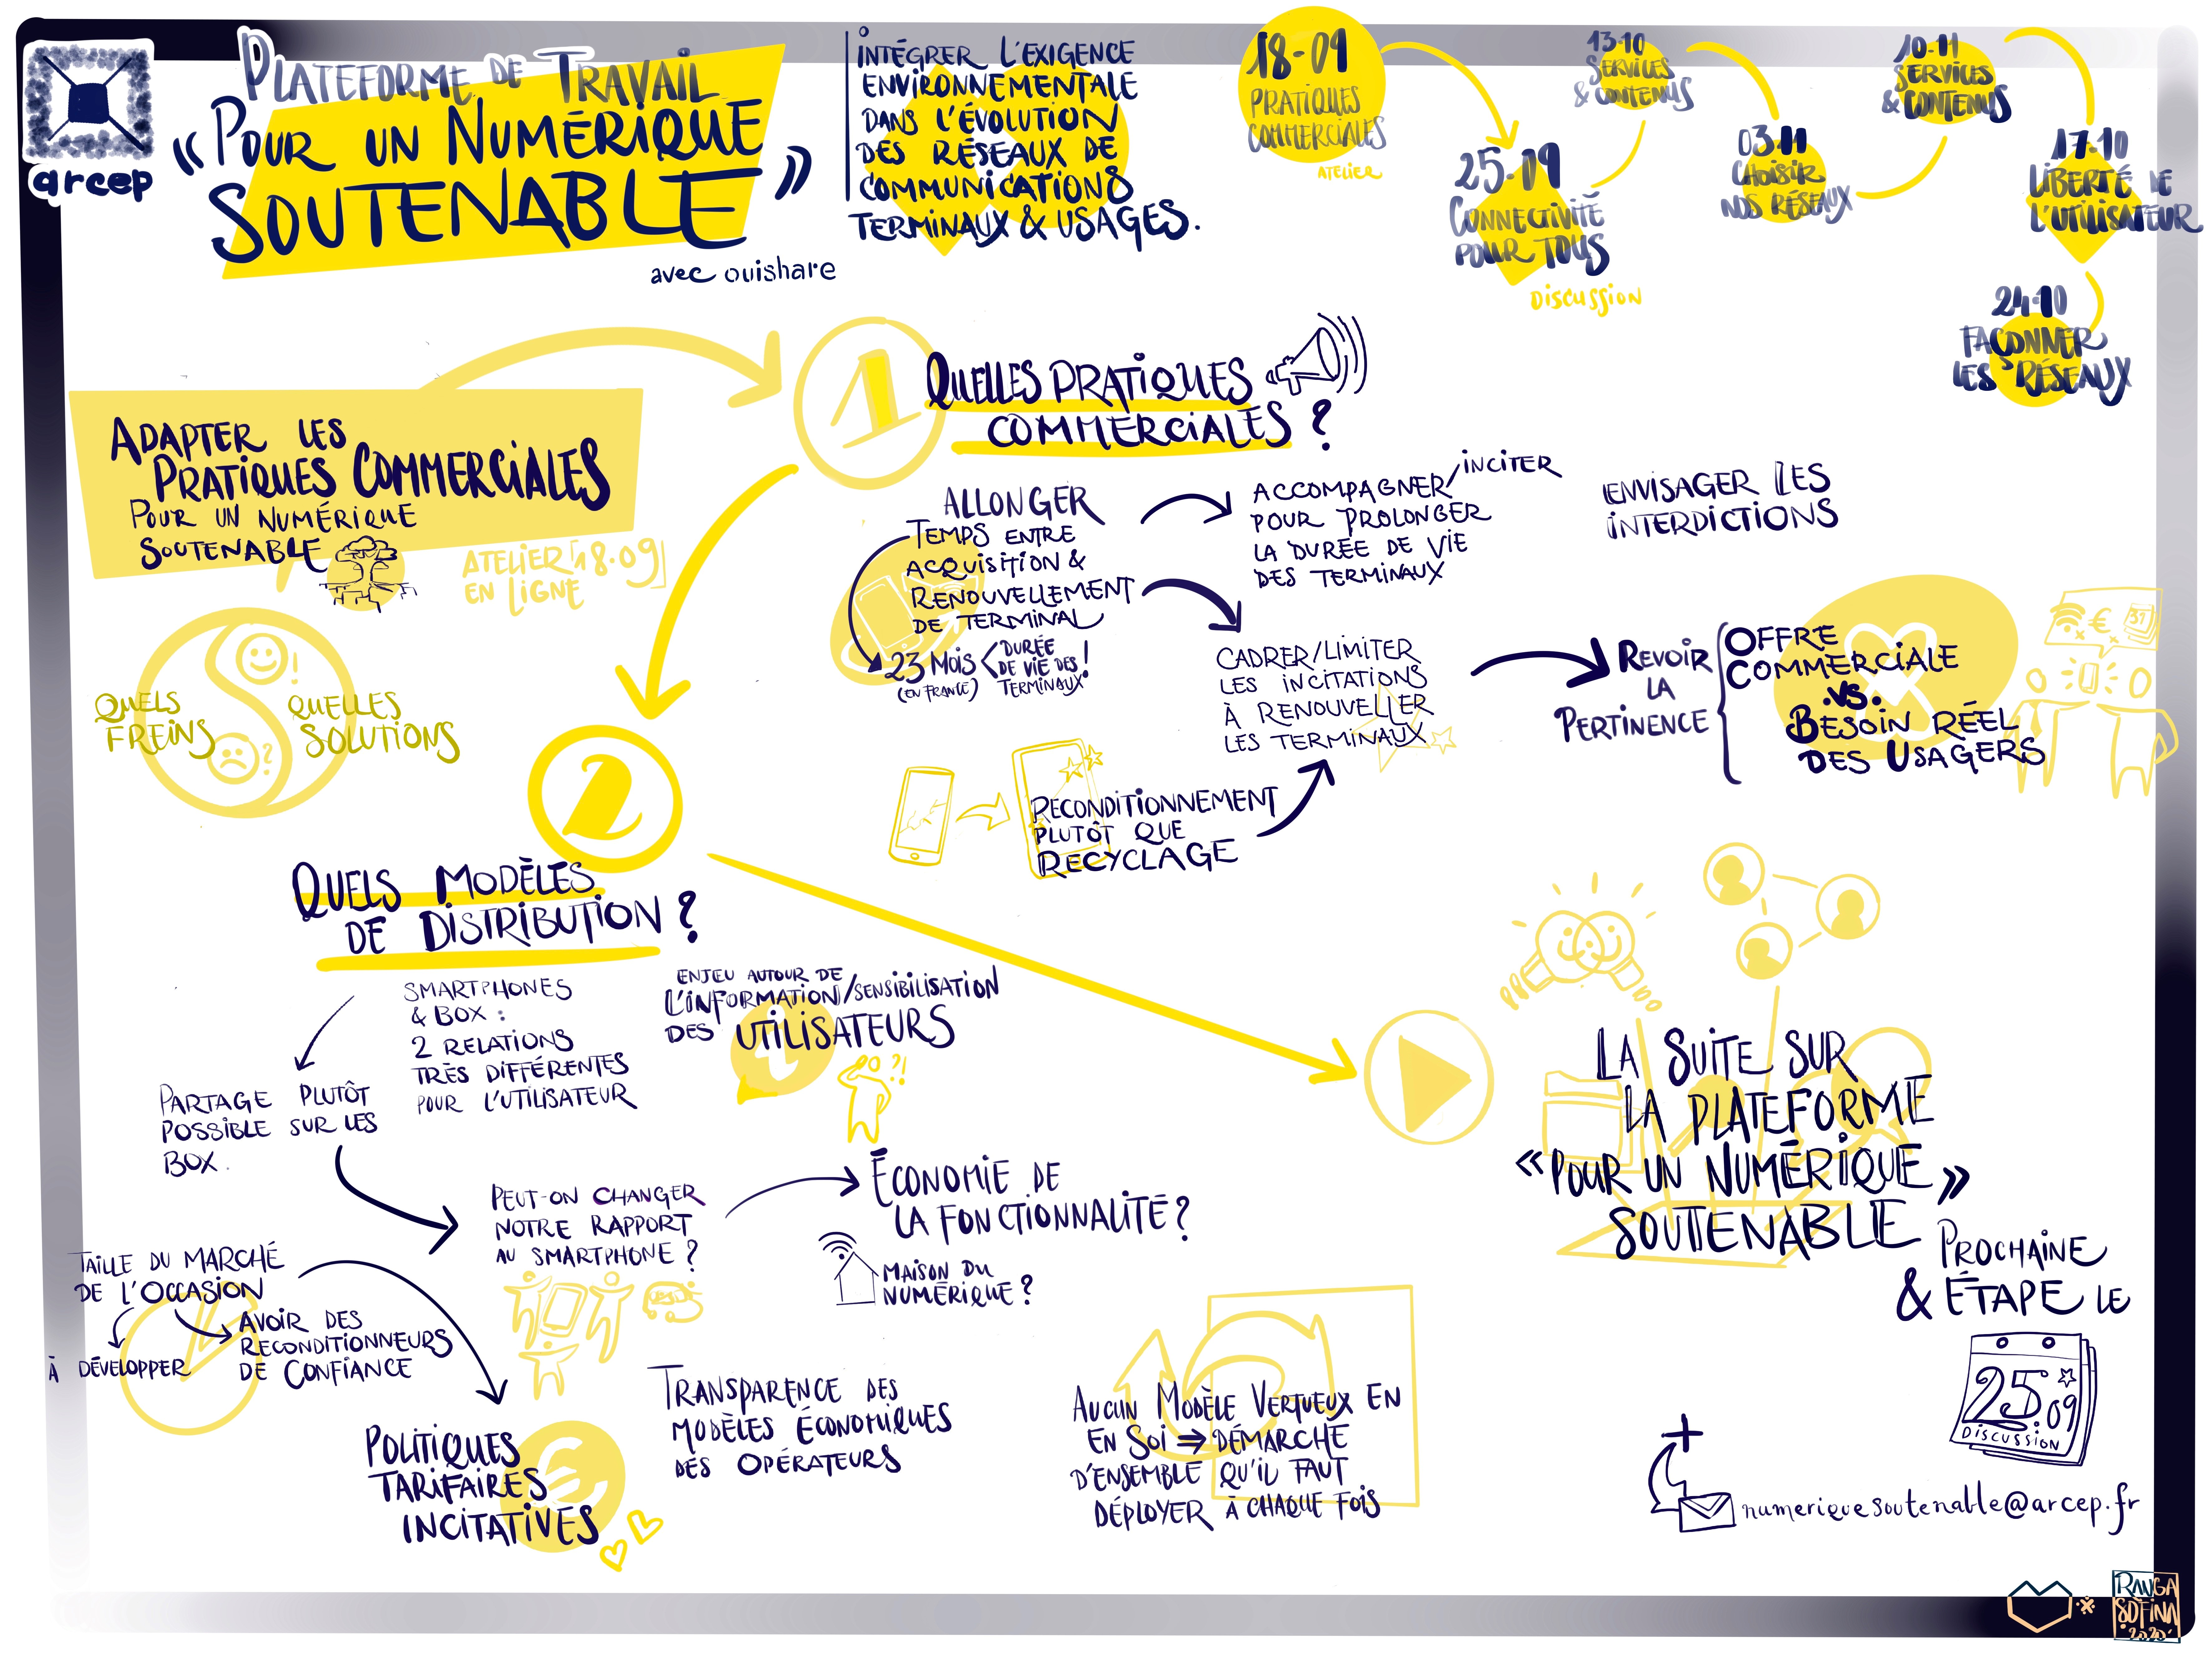 arcep
PLATEFORME DE TRAVAIL
« POUR UN NUMÉRIQUE
SOUTENABLE »
avec ouishare
INTÉGRER L'EXIGENCE
ENVIRONNEMENTALE
DANS L'ÉVOLUTION
DES RÉSEAUX DE
COMMUNICATIONS
TERMINAUX & USAGES.
18-09
PRATIQUES
COMMERCIALES
ATELIER
25-09
CONNECTIVITÉ
POUR TOUS
DISCUSSION
13-10
SERVICES
& CONTENUS
03-11
CHOISIR
NOS RÉSEAUX
10-11
SERVICES
& CONTENUS
17-10
LIBERTÉ DE
L'UTILISATEUR
24-10
FAÇONNER
LES RÉSEAUX
ADAPTER LES
PRATIQUES COMMERCIALES
POUR UN NUMÉRIQUE
SOUTENABLE
ATELIER [18.09]
EN LIGNE
QUELS
FREINS
QUELLES
SOLUTIONS
!
?
1
QUELLES PRATIQUES
COMMERCIALES ?
ALLONGER
TEMPS ENTRE
ACQUISITION &
RENOUVELLEMENT
DE TERMINAL
23 MOIS < DURÉE
DE VIE DES !
(EN FRANCE) TERMINAUX
ACCOMPAGNER/INCITER
POUR PROLONGER
LA DURÉE DE VIE
DES TERMINAUX
ENVISAGER LES
INTERDICTIONS
CADRER/LIMITER
LES INCITATIONS
À RENOUVELLER
LES TERMINAUX
RECONDITIONNEMENT
PLUTÔT QUE
RECYCLAGE
REVOIR
LA
PERTINENCE
OFFRE
COMMERCIALE
.VS.
BESOIN RÉEL
DES USAGERS
€
2
QUELS MODÈLES
DE DISTRIBUTION ?
SMARTPHONES
& BOX :
2 RELATIONS
TRÈS DIFFÉRENTES
POUR L'UTILISATEUR
ENJEU AUTOUR DE
L'INFORMATION/SENSIBILISATION
DES UTILISATEURS
i
?!
PARTAGE PLUTÔT
POSSIBLE SUR LES
BOX.
PEUT-ON CHANGER
NOTRE RAPPORT
AU SMARTPHONE ?
ÉCONOMIE DE
LA FONCTIONNALITÉ ?
MAISON DU
NUMÉRIQUE ?
TAILLE DU MARCHÉ
DE L'OCCASION
À DÉVELOPPER
AVOIR DES
RECONDITIONNEURS
DE CONFIANCE
POLITIQUES
TARIFAIRES
INCITATIVES
€
TRANSPARENCE DES
MODÈLES ÉCONOMIQUES
DES OPÉRATEURS
AUCUN MODÈLE VERTUEUX EN
EN SOI ⇒ DÉMARCHE
D'ENSEMBLE QU'IL FAUT
DÉPLOYER À CHAQUE FOIS
LA SUITE SUR
LA PLATEFORME
« POUR UN NUMÉRIQUE »
SOUTENABLE
& PROCHAINE
ÉTAPE LE
25.09
DISCUSSION
+
numeriquesoutenable@arcep.fr
RANGA
SOFINA
2020